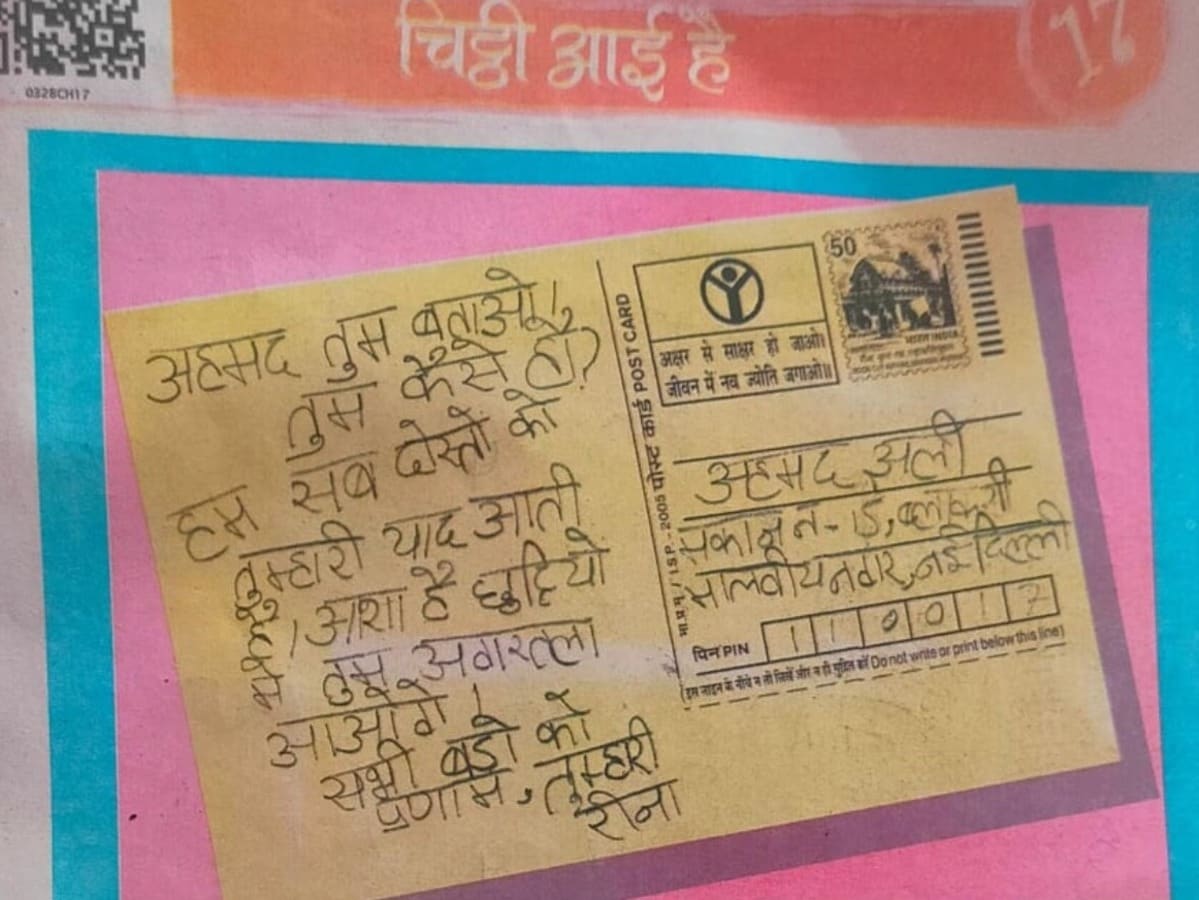 0328CH17
चिट्ठी आई है
17
अहमद तुम बताओ,
तुम कैसे हो?
हम सब दोस्तों को
तुम्हारी याद आती
है। आशा है छुट्टियों
में तुम अगरतला
आओगे।
सभी बड़ों को
प्रणाम, तुम्हारी
रीना
भा.प्र.मु./I.S.P.-2005 पोस्ट कार्ड POST CARD
अक्षर से साक्षर हो जाओ।
जीवन में नव ज्योति जगाओ॥
50
भारत INDIA
अहमद अली
मकान न-
मालवीयनगर, नई दिल्ली
पिन PIN 110017
इस लाइन के नीचे न तो लिखें और न ही मुद्रित करें Do not write or print below this line